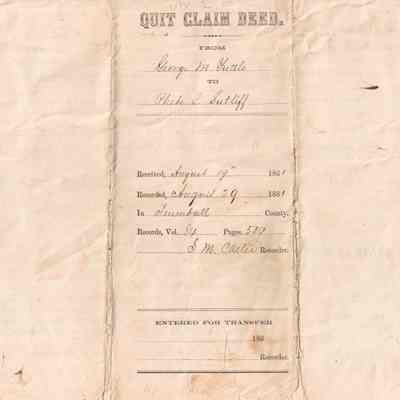 QUIT CLAIM DEED.
FROM
George M Tuttle
TO
Phebe L Sutliff
Received, August 19th 1881
Recorded, August 29 1881
In Trumbull County,
Records, Vol. Pages, 589
S M Carter Recorder.
ENTERED FOR TRANSFER
188
Recorder.